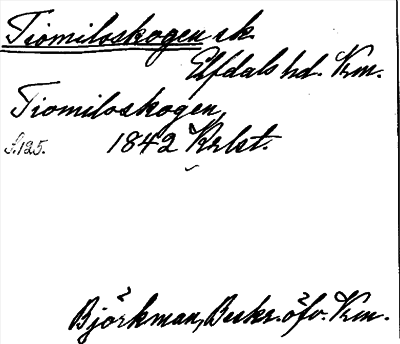 Tiomiloskogen sk.
Elfdals hd. Vrm.
Tiomiloskogen,
S. 125. 1842 Krlst.
Björkman, Beskr. öfv. Vrm.